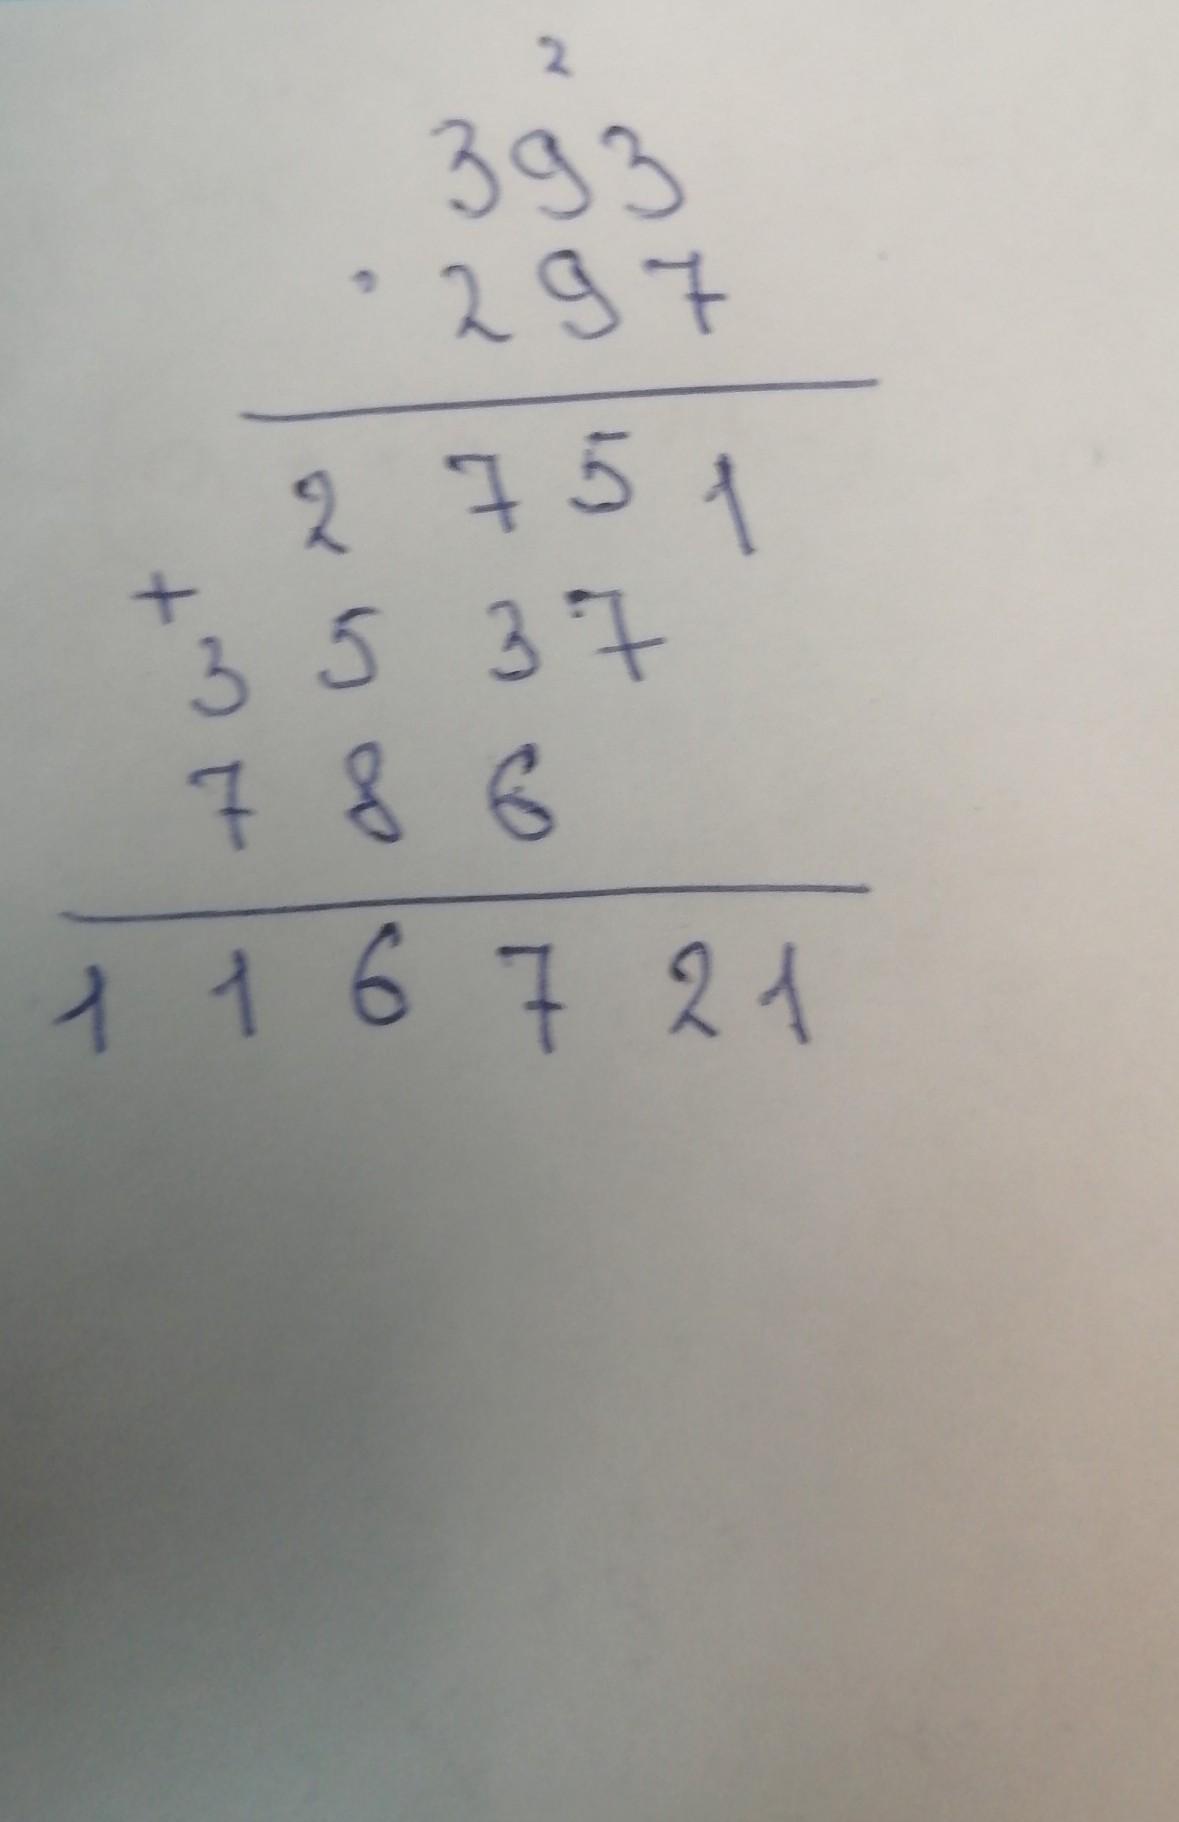 2
393
· 297
2751
+
3537
786
116721